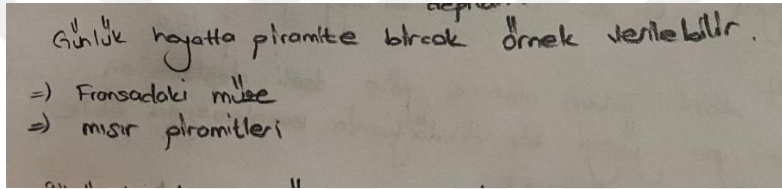 Günlük hayatta piramite bircok örnek verilebilir.
=) Fransadaki müze
=) mısır piramitleri